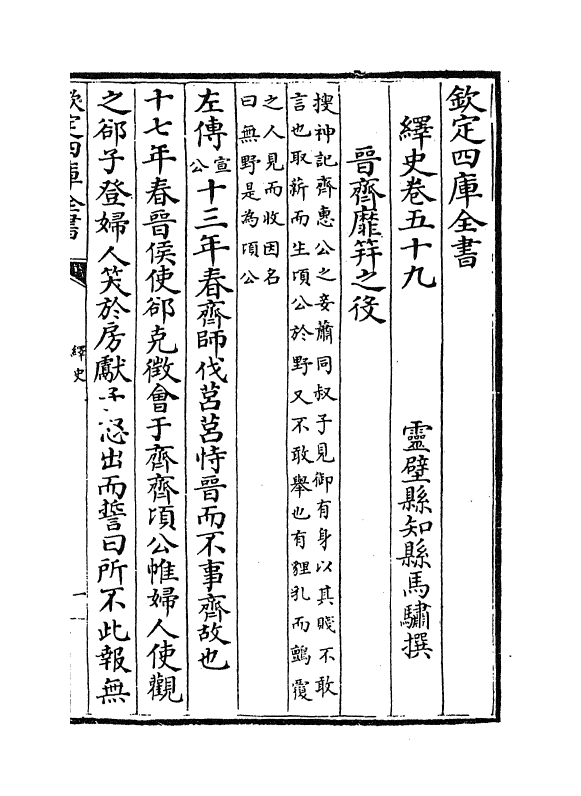 欽定四庫全書
繹史卷五十九　靈壁縣知縣馬驌撰
晉齊靡筓之役
搜神記齊惠公之妾蕭同叔子見御有身以其賤不敢
言也取薪而生頃公於野又不敢舉也有貍乳而鸇覆
之人見而收因名
曰無野是為頃公
左傳宣公十三年春齊師伐莒莒恃晉而不事齊故也
十七年春晉侯使郤克徵會于齊齊頃公帷婦人使觀
之郤子登婦人笑於房獻子怒出而誓曰所不此報無
欽定四庫全書
繹史
一